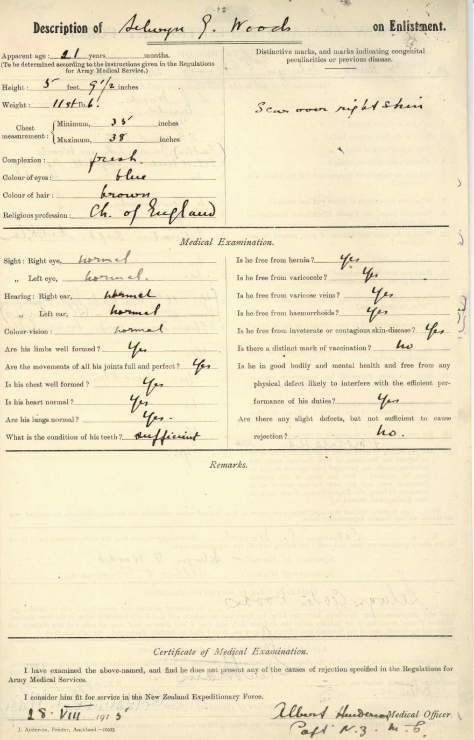 Description of Selwyn G. Woods on Enlistment.
Apparent age: 21 years months.
(To be determined according to the instructions given in the Regulations
for Army Medical Service.)
Height: 5 feet 9½ inches
Weight: 11st 7lb.
Chest measurement: Minimum, 35 inches
Maximum, 38 inches
Complexion: fresh.
Colour of eyes: blue
Colour of hair: brown
Religious profession: Ch. of England
Distinctive marks, and marks indicating congenital
peculiarities or previous disease.
Scar over right shin
Medical Examination.
Sight: Right eye, normal
„ Left eye, normal.
Hearing: Right ear, normal
„ Left ear, normal
Colour-vision: normal
Are his limbs well formed? Yes
Are the movements of all his joints full and perfect? Yes
Is his chest well formed? Yes
Is his heart normal? Yes
Are his lungs normal? Yes.
What is the condition of his teeth? sufficient
Is he free from hernia? Yes
Is he free from varicocele? Yes
Is he free from varicose veins? Yes
Is he free from haemorrhoids? Yes
Is he free from inveterate or contagious skin-disease? Yes
Is there a distinct mark of vaccination? No
Is he in good bodily and mental health and free from any
physical defect likely to interfere with the efficient per-
formance of his duties? Yes
Are there any slight defects, but not sufficient to cause
rejection? No.
Remarks.
Certificate of Medical Examination.
I have examined the above-named, and find he does not present any of the causes of rejection specified in the Regulations for
Army Medical Services.
I consider him fit for service in the New Zealand Expeditionary Force.
28 · VIII 1915
Albert Medical Officer.
Capt N.Z. M.C.
J. Anderson, Printer, Auckland